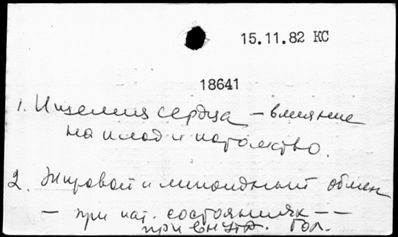 15.11.82 КС
18641
1. Ишемия сердца – влияние
на плод и потомство.
2. Жировой и липоидный обмен
– при пат. состояниях – –
при внутр. Гол.